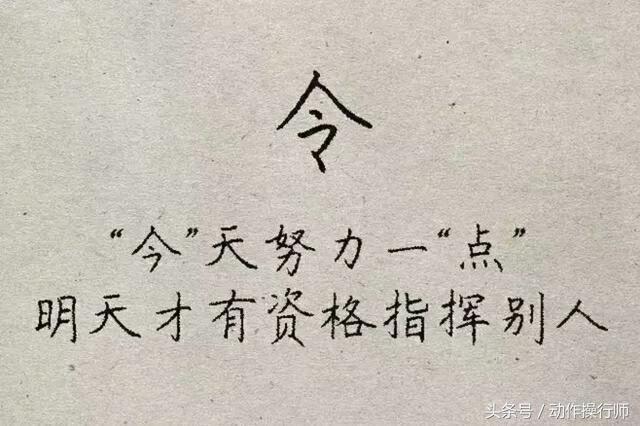 令
“今”天努力一“点”
明天才有资格指挥别人
头条号／动作操行师